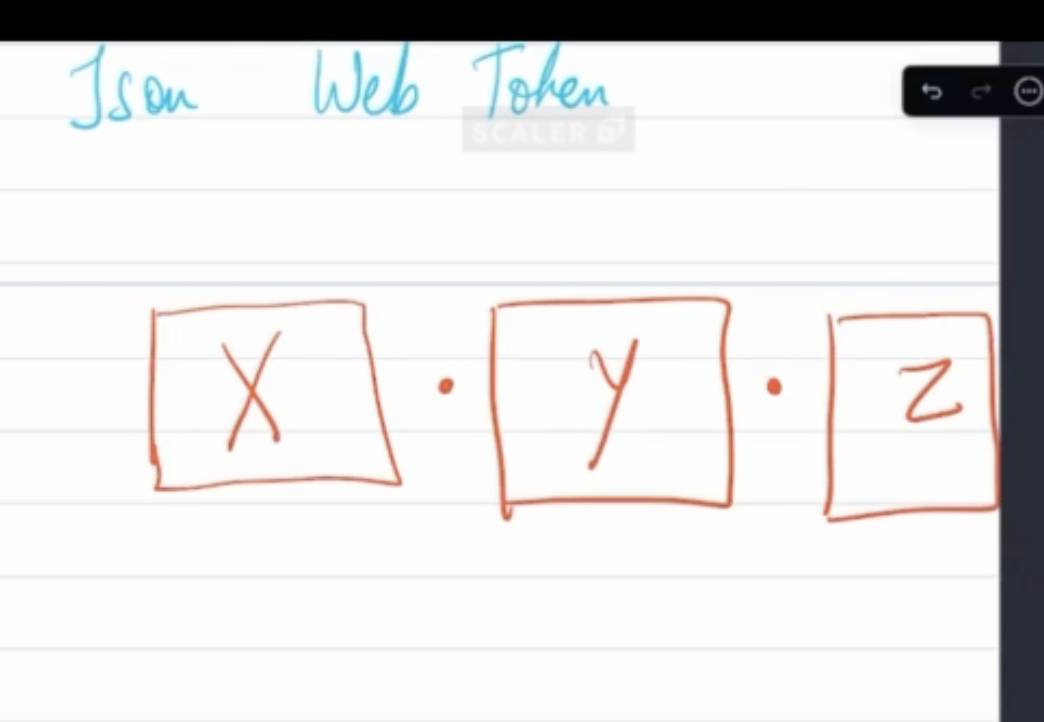 Json Web Token
SCALER
X . y . Z